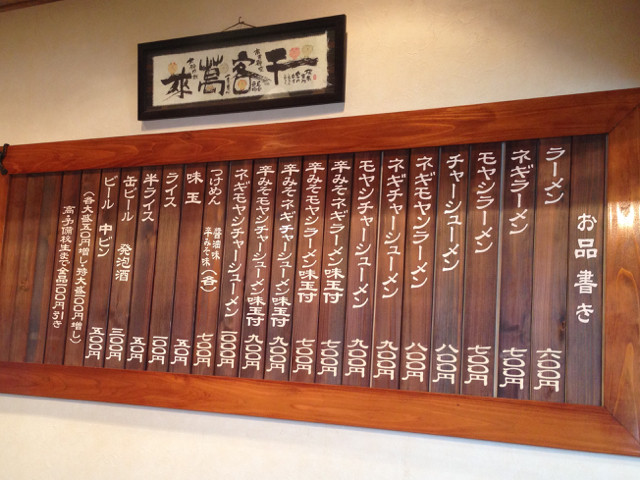 千客萬來
お品書き
ラーメン 六〇〇円
ネギラーメン 七〇〇円
モヤシラーメン 七〇〇円
チャーシューメン 八〇〇円
ネギモヤシラーメン 八〇〇円
ネギチャーシューメン 九〇〇円
モヤシチャーシューメン 九〇〇円
辛みそネギラーメン味玉付 七〇〇円
辛みそモヤシラーメン味玉付 七〇〇円
辛みそネギチャーシューメン味玉付 九〇〇円
辛みそモヤシチャーシューメン味玉付 九〇〇円
ネギモヤシチャーシューメン 一〇〇〇円
つけめん 醤油味 辛みそ味 (各) 七〇〇円
味玉 五〇円
ライス 一〇〇円
半ライス 五〇円
缶ビール 発泡酒 三〇〇円
ビール 中ビン 五〇〇円
(各大盛五〇円増し・特大盛一〇〇円増し)
高・予備校生まで全品一〇〇円引き